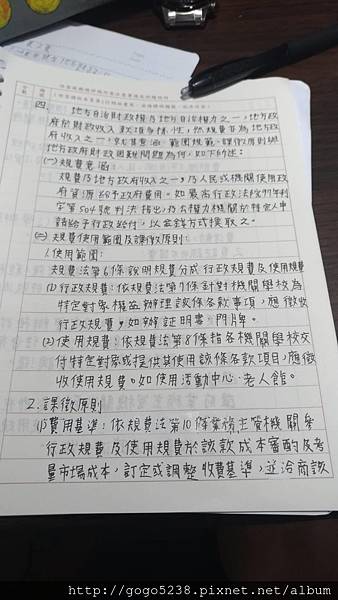 四、地方自治財政權乃地方自治權力之一，地方政
府於財政收入款項多樣性，依規費亦為地方政
府收入之一，就其意涵、範圍規範、課徵原則與
地方政府財政困難問題為何，如下所述：
(一)規費意涵
規費乃地方政府收入之一，乃人民或機關使用政
府資源給予政府費用。如最高行政法院77年判
字第504號判決指出，乃公權力機關於特定人申
請給予行政給付，以金錢方式換取之。
(二)規費使用範圍及課徵原則：
1.使用範圍：
規費法第6條說明規費分成行政規費及使用規費
(1)行政規費：依規費法第7條針對機關學校為
特定對象權益辦理該條各款事項，應徵收
行政規費，如辦証明書、門牌。
(2)使用規費：依規費法第8條指各機關學校交
付特定對象或提供其使用該條各款項目，應徵
收使用規費。如使用活動中心、老人館。
2.課徵原則
(1)費用基準：依規費法第10條業務主管機關參
行政規費及使用規費於該款成本審酌及考
量市場成本，訂定或調整收費基準，並洽商該
http://gogo5238.pixnet.net/album